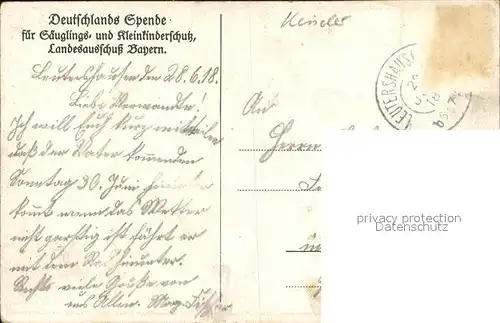 Deutschlands Spende
für Säuglings- und Kleinkinderschutz,
Landesausschuß Bayern.
Leutershausen den 28.6.18.
Liebe Verwandte!
Ich will Euch kurz mitteilen
daß der Vater kommenden
Sonntag 30. Juni
kommt wenn das Wetter
nicht garstig ist fährt er
mit dem Rad hinunter.
viele Grüße von
uns Allen.
Kinder
LEUTERSHAUS
An
Herrn
privacy protection
Datenschutz